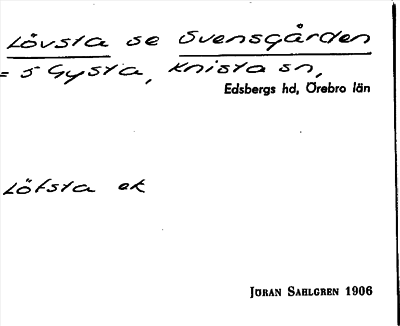 Lövsta se Svensgården
= S Gysta, Knista sn,
Edsbergs hd, Örebro län
Löfsta ek
JÖRAN SAHLGREN 1906